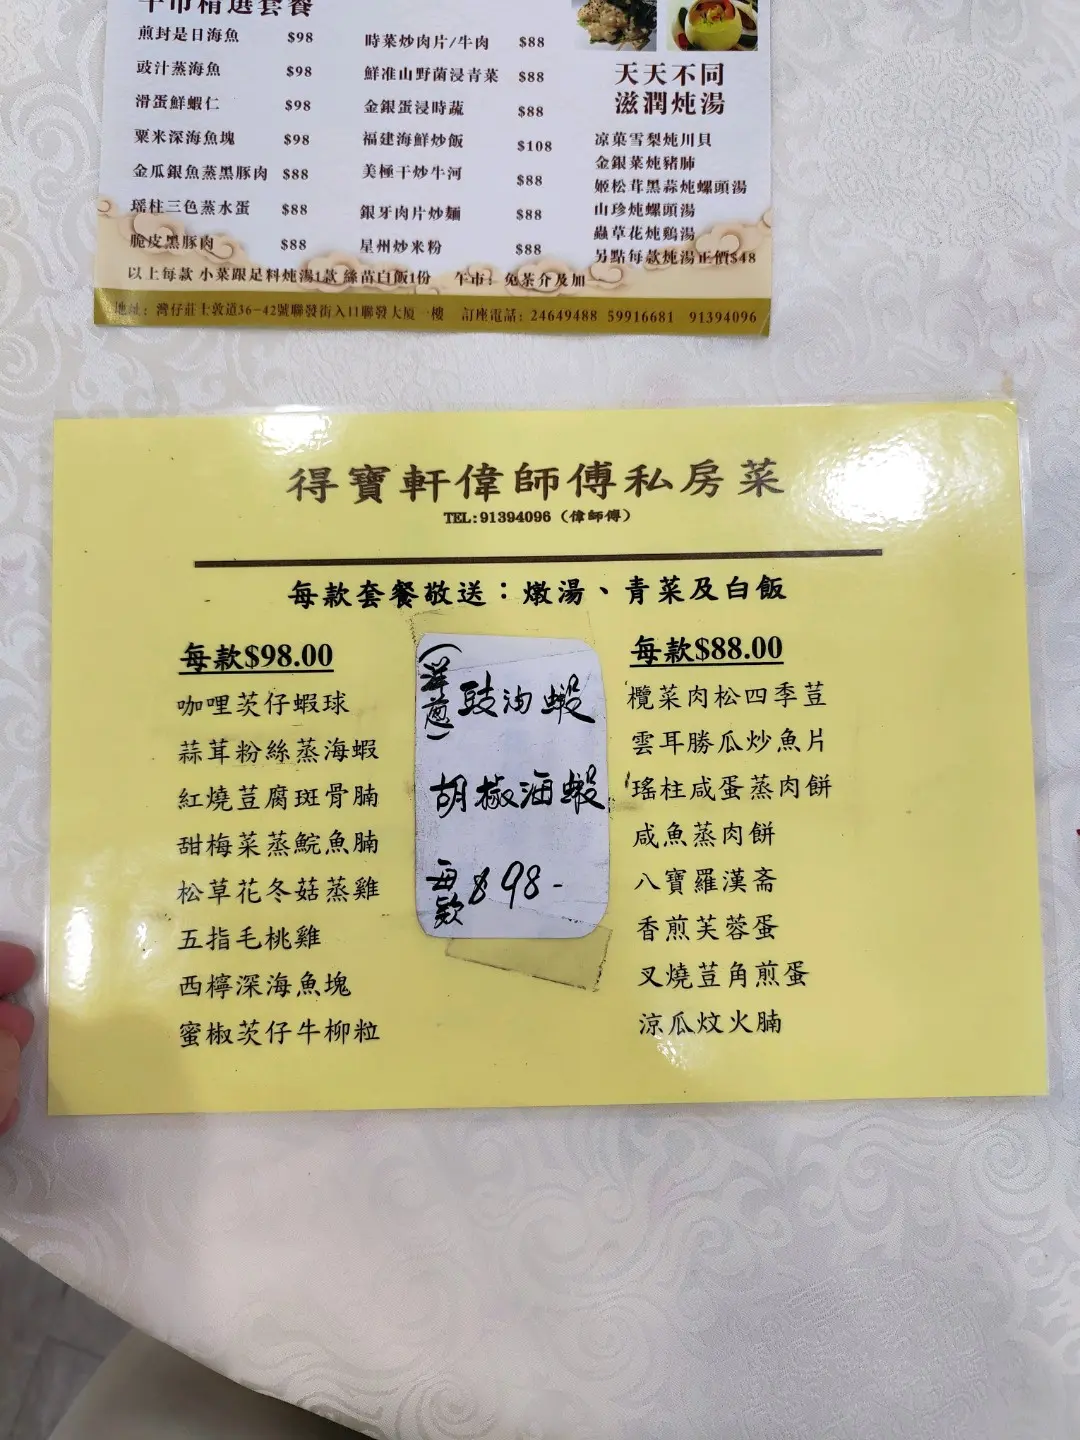 午市精選套餐
煎封是日海魚 $98
豉汁蒸海魚 $98
滑蛋鮮蝦仁 $98
粟米深海魚塊 $98
金瓜銀魚蒸黑豚肉 $88
瑤柱三色蒸水蛋 $88
脆皮黑豚肉 $88
時菜炒肉片/牛肉 $88
鮮准山野菌浸青菜 $88
金銀蛋浸時蔬 $88
福建海鮮炒飯 $108
美極干炒牛河 $88
銀牙肉片炒麵 $88
星州炒米粉 $88
天天不同
滋潤炖湯
凉菓雪梨炖川貝
金銀菜炖豬肺
姬松茸黑蒜炖螺頭湯
山珍炖螺頭湯
蟲草花炖鷄湯
另點每款炖湯正價$48
以上每款 小菜跟足料炖湯1款 絲苗白飯1份 午市：免茶介及加一
地址：灣仔莊士敦道36-42號聯發街入口聯發大厦一樓 訂座電話：24649488 59916681 91394096
得寶軒偉師傅私房菜
TEL:91394096（偉師傅）
每款套餐敬送：燉湯、青菜及白飯
每款$98.00
咖哩茨仔蝦球
蒜茸粉絲蒸海蝦
紅燒荳腐斑骨腩
甜梅菜蒸鯇魚腩
松草花冬菇蒸雞
五指毛桃雞
西檸深海魚塊
蜜椒茨仔牛柳粒
(洋蔥) 豉油蝦
胡椒海蝦
每款 $98-
每款$88.00
欖菜肉松四季荳
雲耳勝瓜炒魚片
瑤柱咸蛋蒸肉餅
咸魚蒸肉餅
八寶羅漢斋
香煎芙蓉蛋
叉燒荳角煎蛋
涼瓜炆火腩